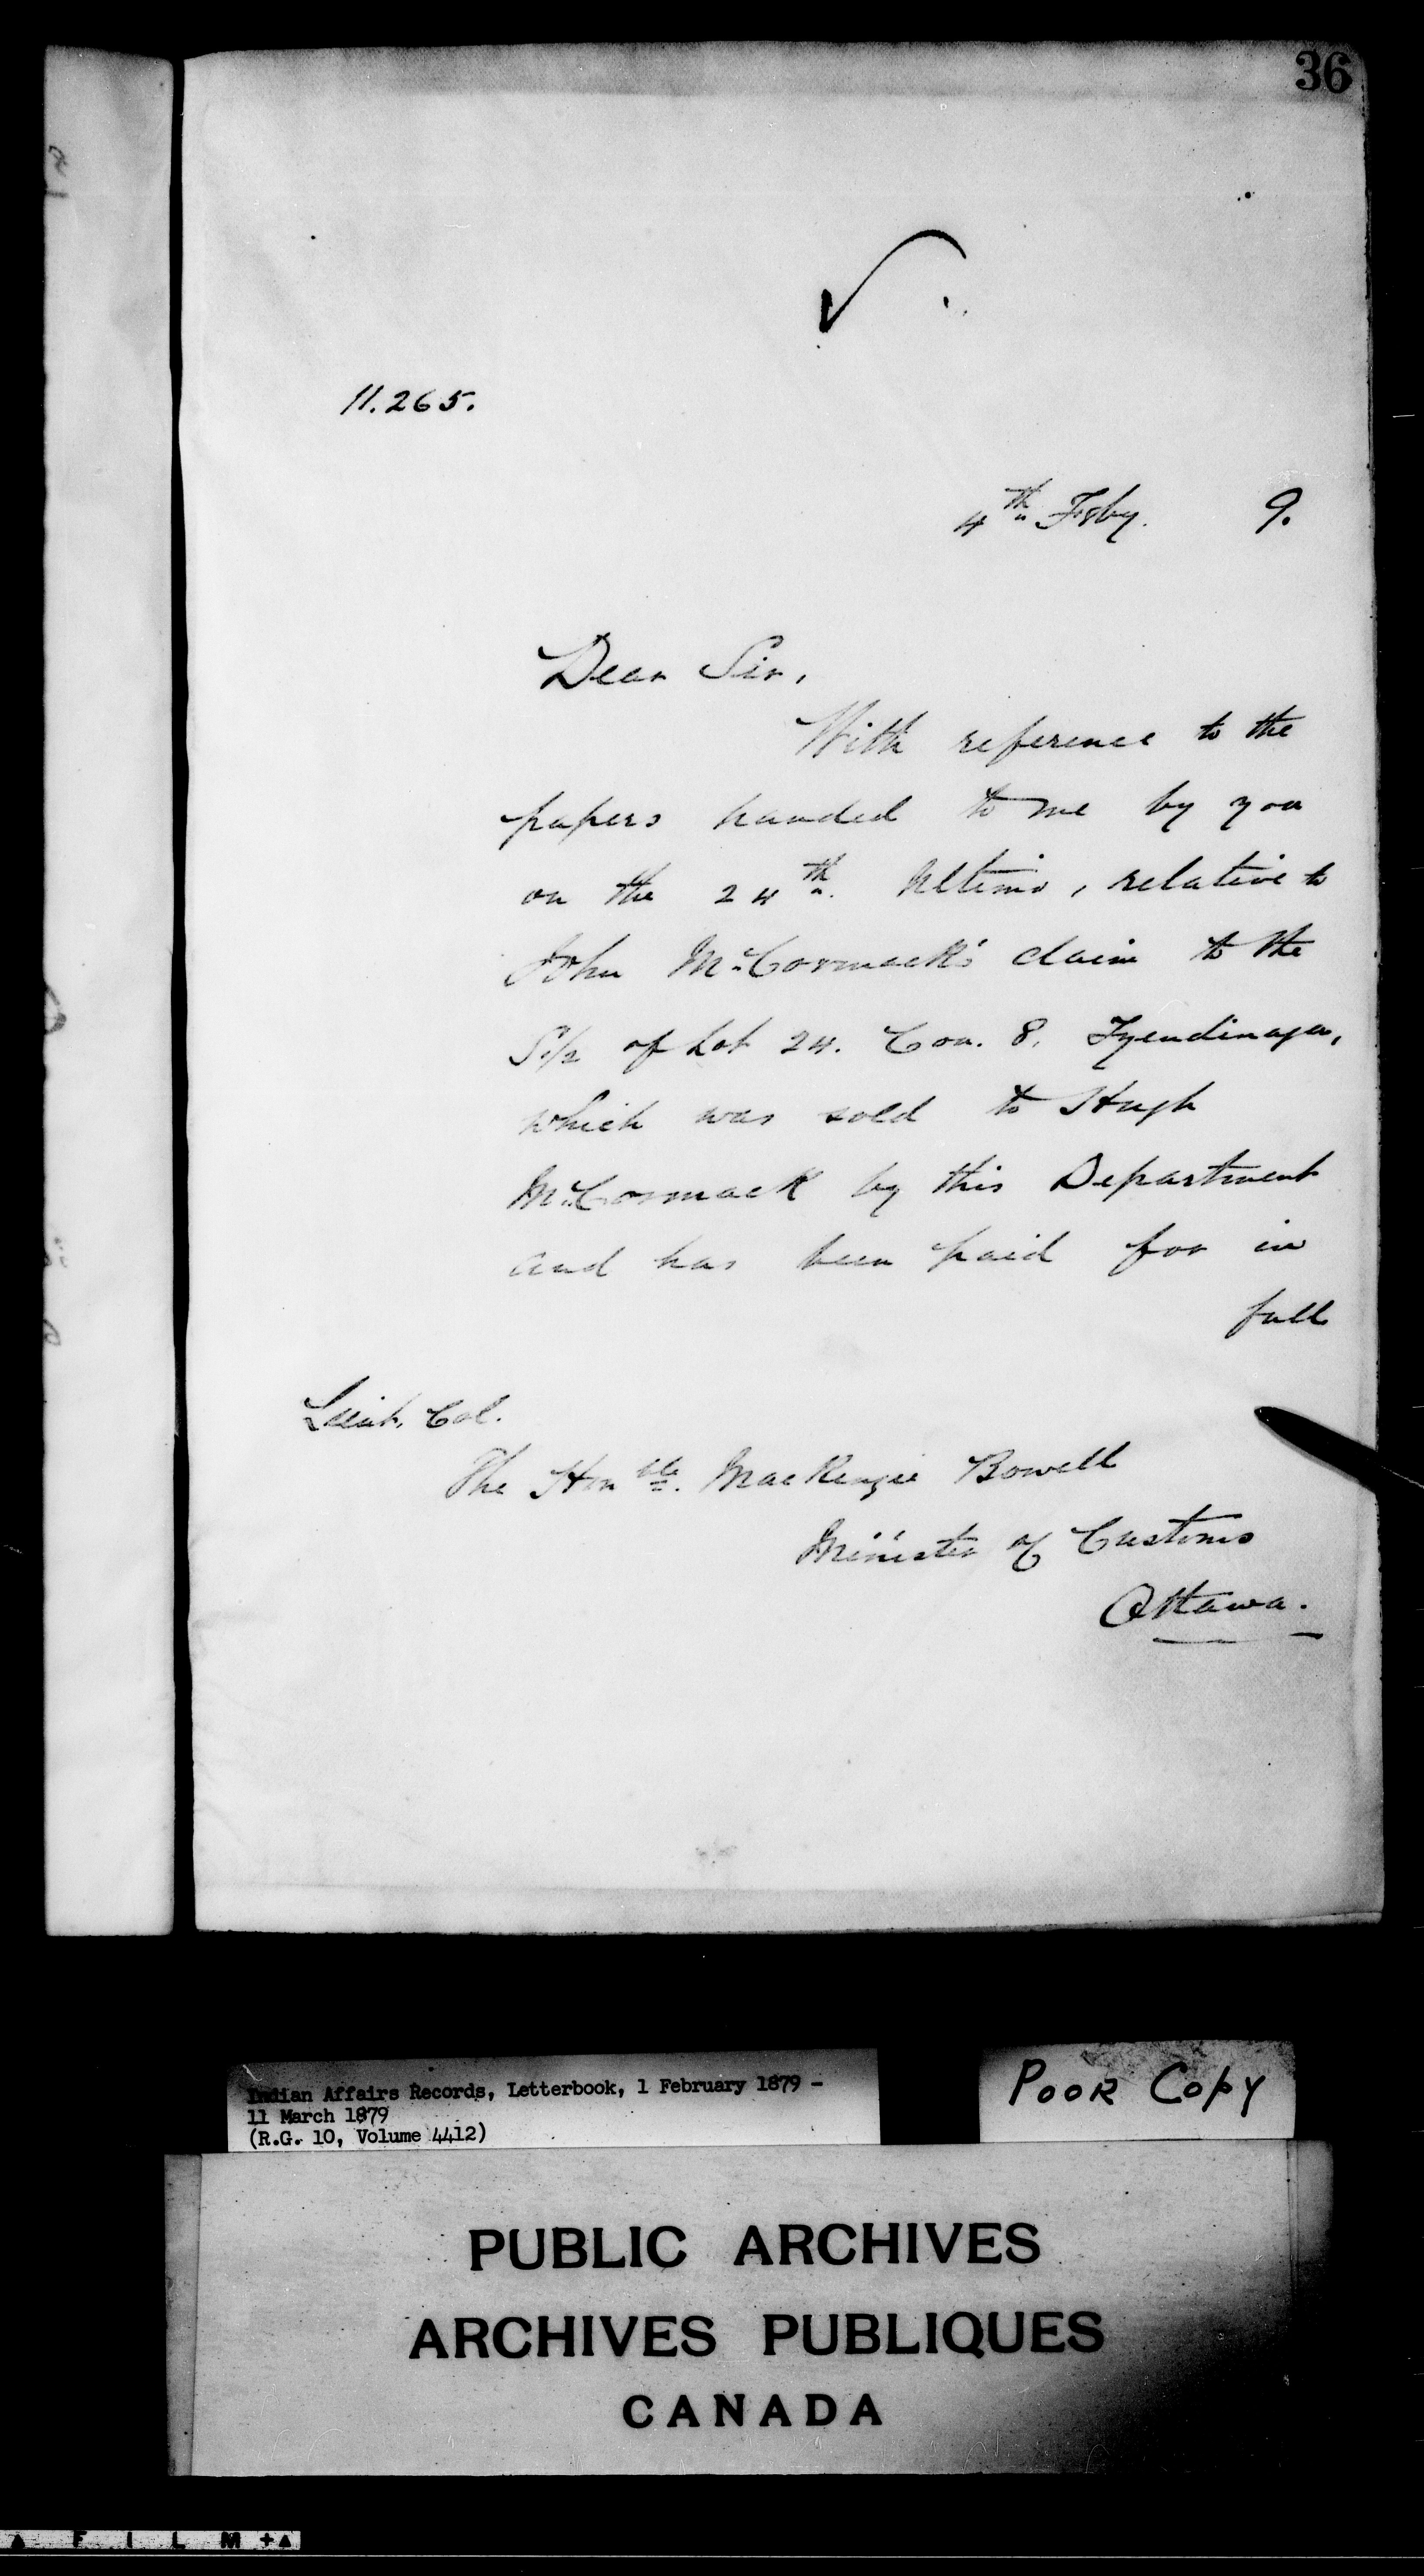 36
11.265.
4th Feby. 9.
Dear Sir,
With reference to the
papers handed to me by you
on the 24th. Ultimo, relative to
John McCormack's claim to the
S1/2 of Lot 24. Con. 8, Tyendinaga,
which was sold to Hugh
McCormack by this Department
and has been paid for in
full
Lieut. Col.
The Honble. MacKenzie Bowell
Minister of Customs
Ottawa.
Indian Affairs Records, Letterbook, 1 February 1879 -
11 March 1879
(R.G. 10, Volume 4412)
POOR COPY
PUBLIC ARCHIVES
ARCHIVES PUBLIQUES
CANADA
FILM